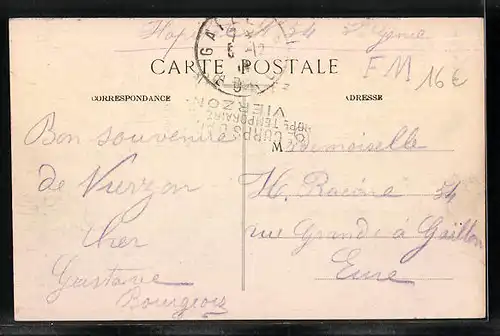 GAILL
6 -12
CARTE POSTALE
FM
16€
CORRESPONDANCE
ADRESSE
CORPS
HOP. TEMPORAIRE
VIERZON
Bon souvenir
de Vierzon
Cher
Gustave
Bourgeois
Mademoiselle
H. Racine 54
rue Grande à Gaillon
Eure